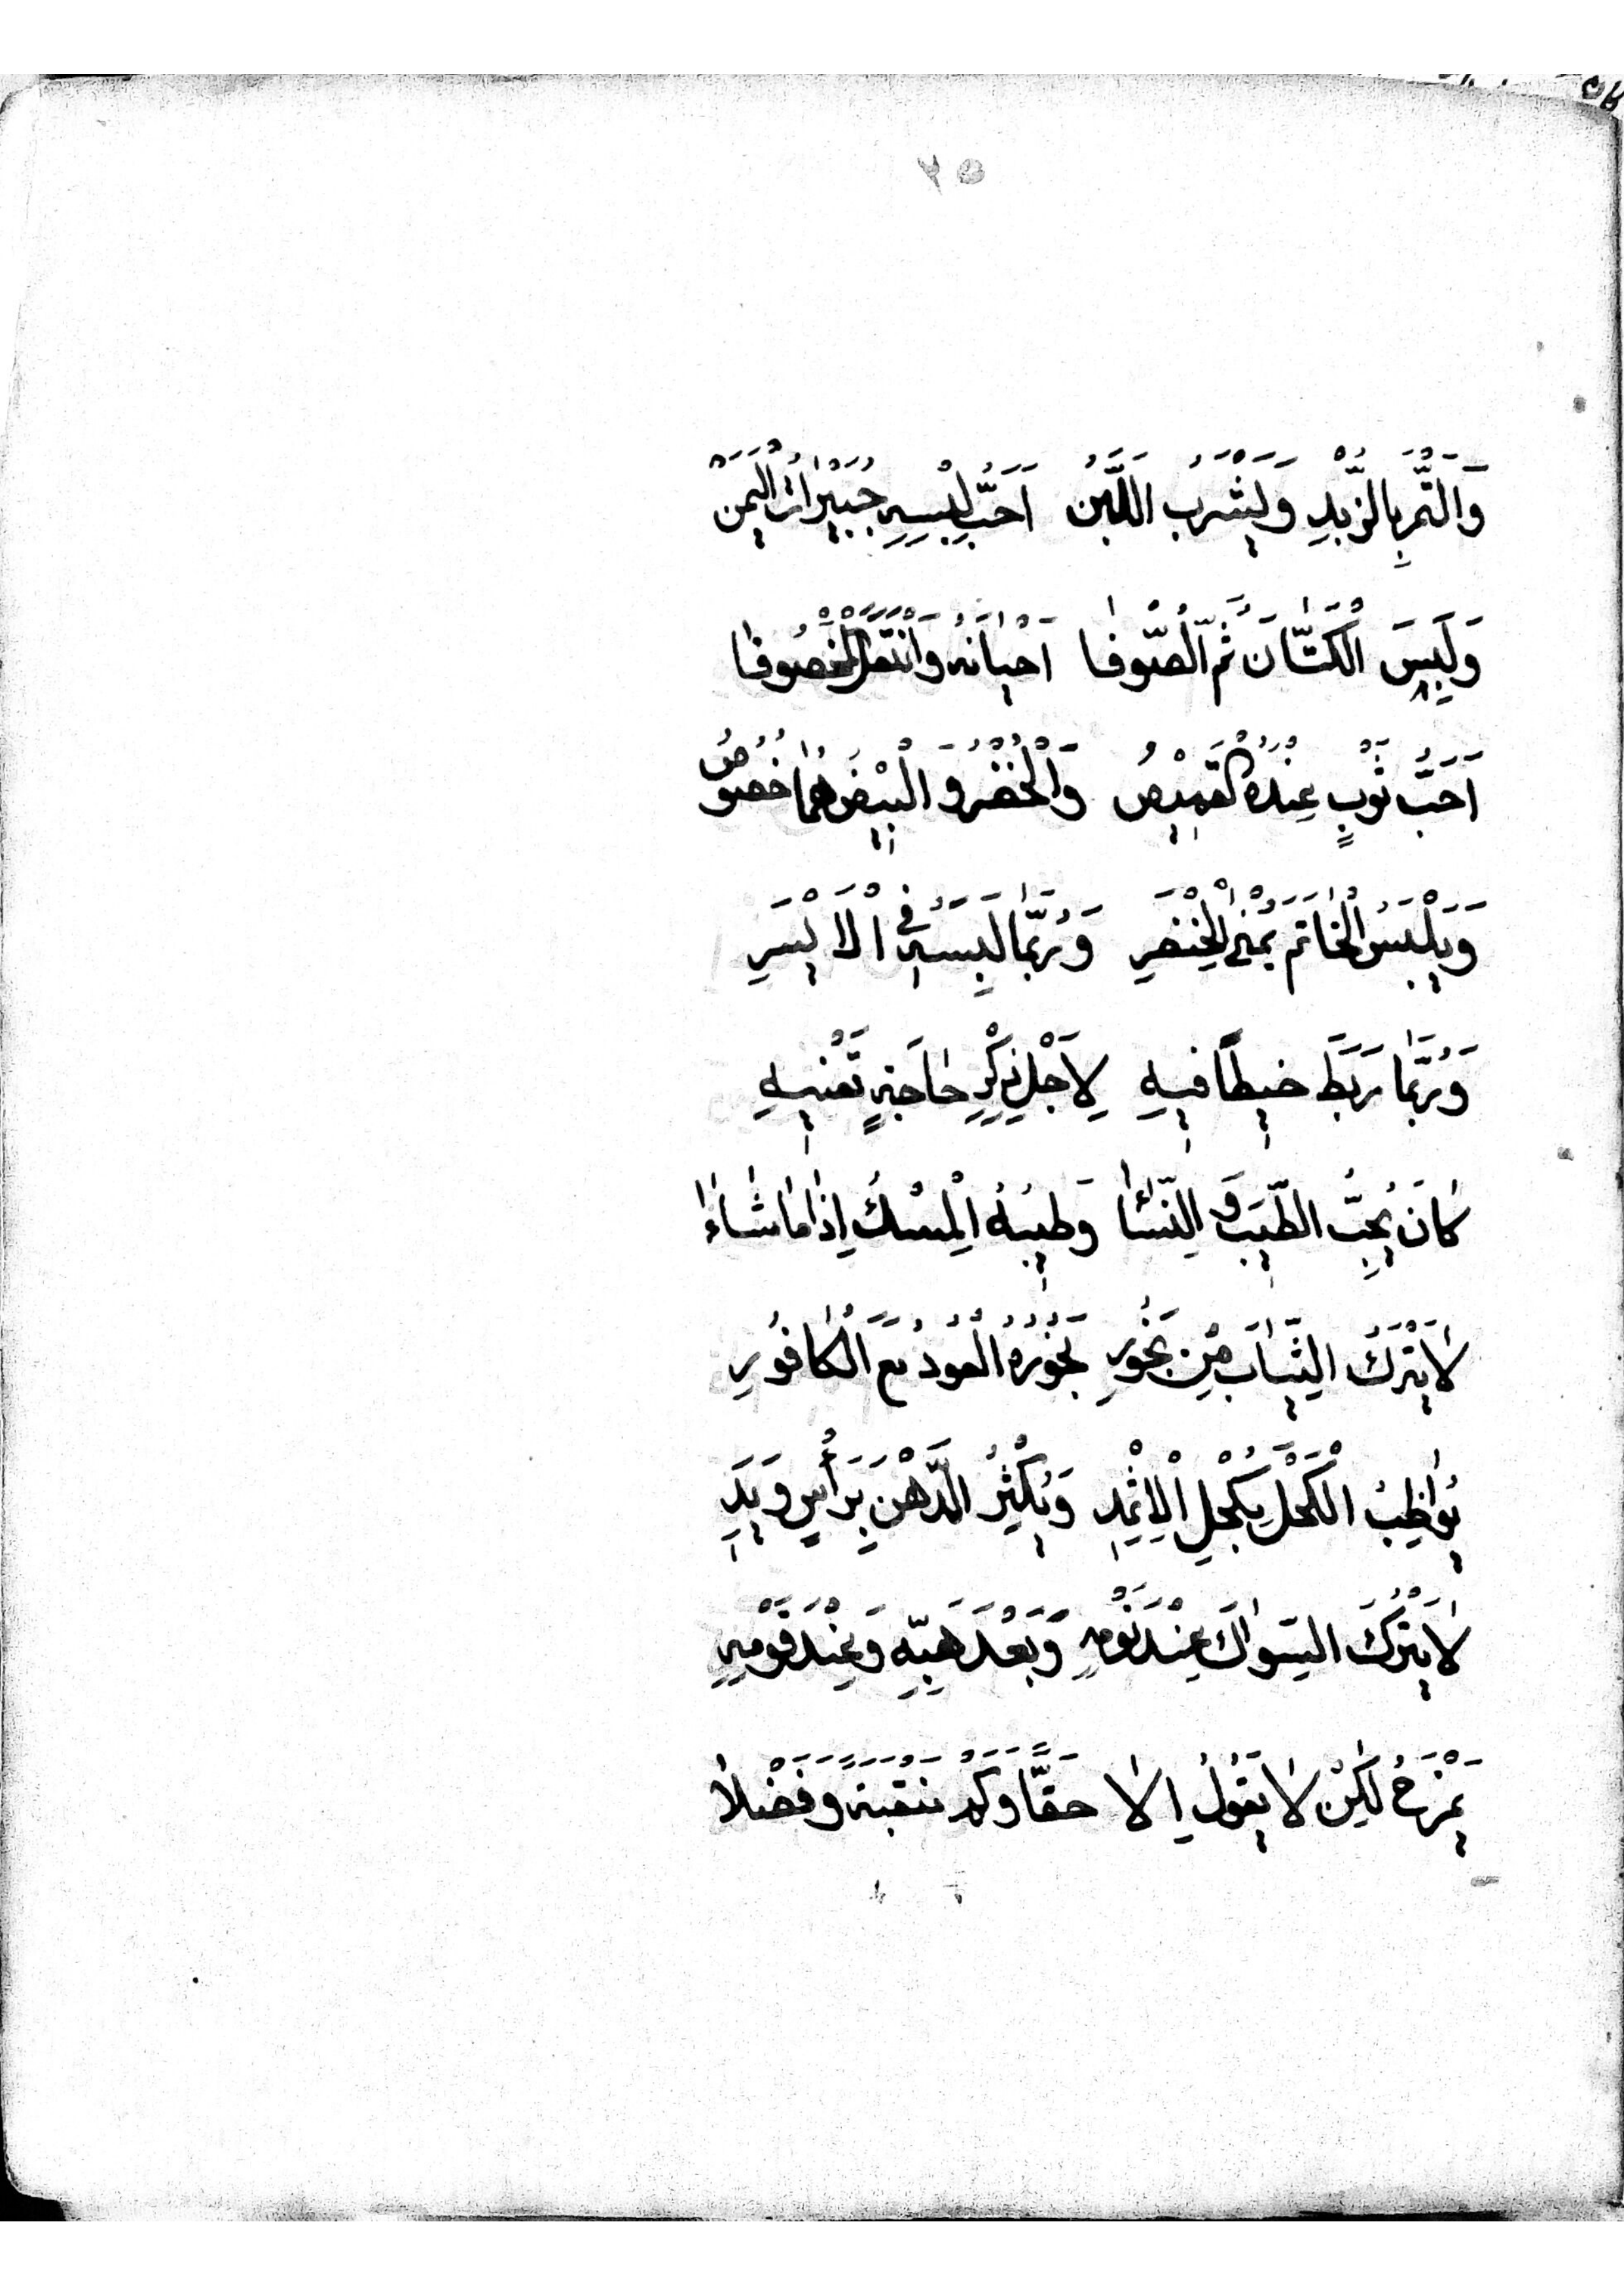 وَالتَّمْرِ بِالزُّبْدِ وَيَشْرَبُ اللَّبَنْ اَحَبُّ لِبْسِهِ حُبَيْرَاتُ الْيَمَنْ
وَلَبِسَ الْكَتَّانَ ثُمَّ الصُّوفَا اَحْيَانَهُ وَانْتَعَلَ الْمَخْصُوفَا
اَحَبُّ ثَوْبٍ عِنْدَهُ الْقَمِيْصُ وَالْخُضْرُ وَ الْبَيْضُ هُمَا خُصُوْصُ
وَيَلْبَسُ الْخَاتَمَ يُمْنَى الْخِنْصَرِ وَرُبَّمَا لَبِسَهُ فِي الْاَيْسَرِ
وَرُبَّمَا رَبَطَ خَيْطًا فِيهِ لِاَجْلِ ذِكْرِ حَاجَةٍ تَعْنِيهِ
كَانَ يُحِبُّ الطِّيبَ وَ النِّسَاءَ وَطِيبُهُ الْمِسْكُ اِذَا مَا شَاءَا
لَا يَتْرُكُ الثِّيَابَ مِنْ بَخُورِ بَخُوْرُهُ الْعُوْدُ مَعَ الْكَافُوْرِ
يُوَاظِبُ الْكَحْلَ بِكُحْلِ الْاِثْمِدِ وَيُكْثِرُ الدَّهْنَ بِرَأْسٍ وَيَدِ
لَا يَتْرُكُ السِّوَاكَ عِنْدَ نَوْمِهِ وَبَعْدَ هَبِّهِ وَعِنْدَ قَوْمِهِ
يَمْزَحُ لٰكِنْ لَا يَقُولُ اِلَّا حَقًّا وَكَمْ مَنْقَبَةً وَفَضْلًا